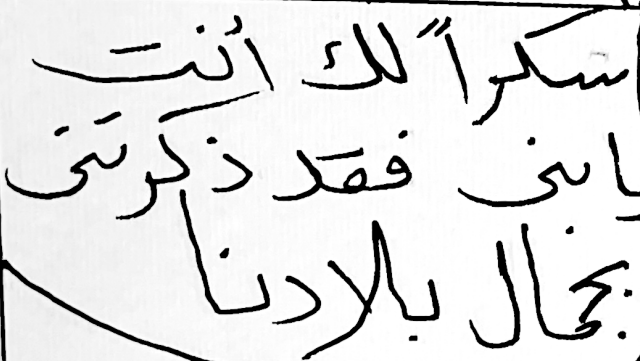 شكراً لك أنت
يابنى فقد ذكرتنى
بجمال بلادنا